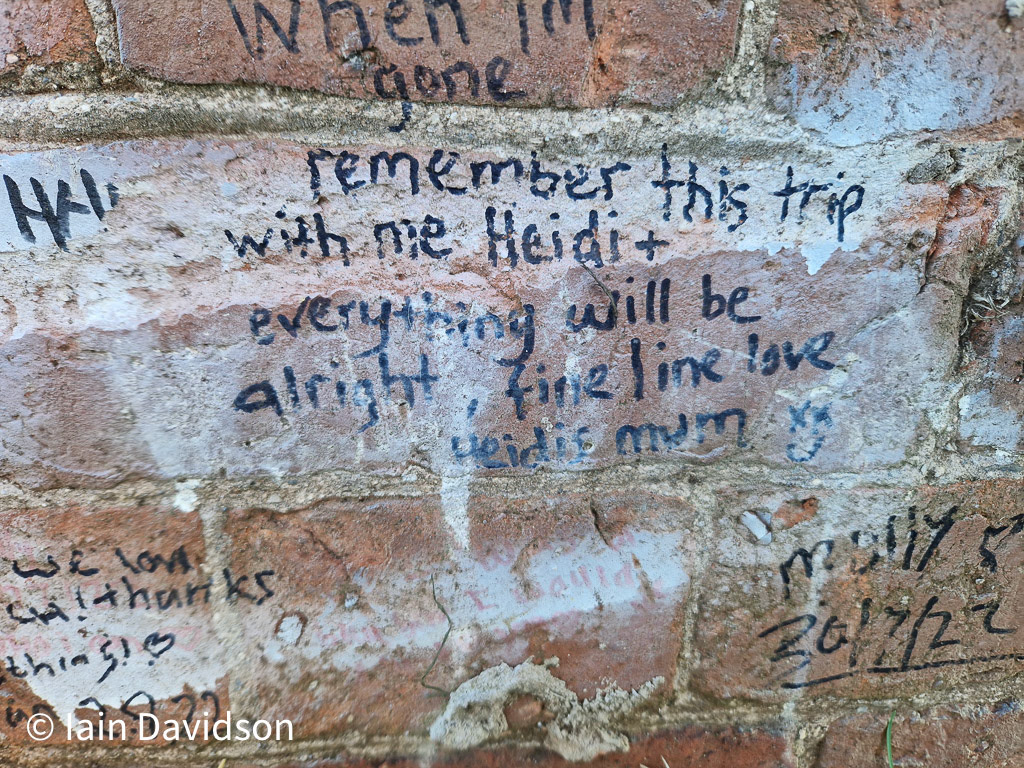 When I'm
gone
remember this trip
with me Heidi +
everything will be
alright, fine line love
Heidis mum xx
we love
thanks
things! ♡
Molly
20/7/22
© Iain Davidson